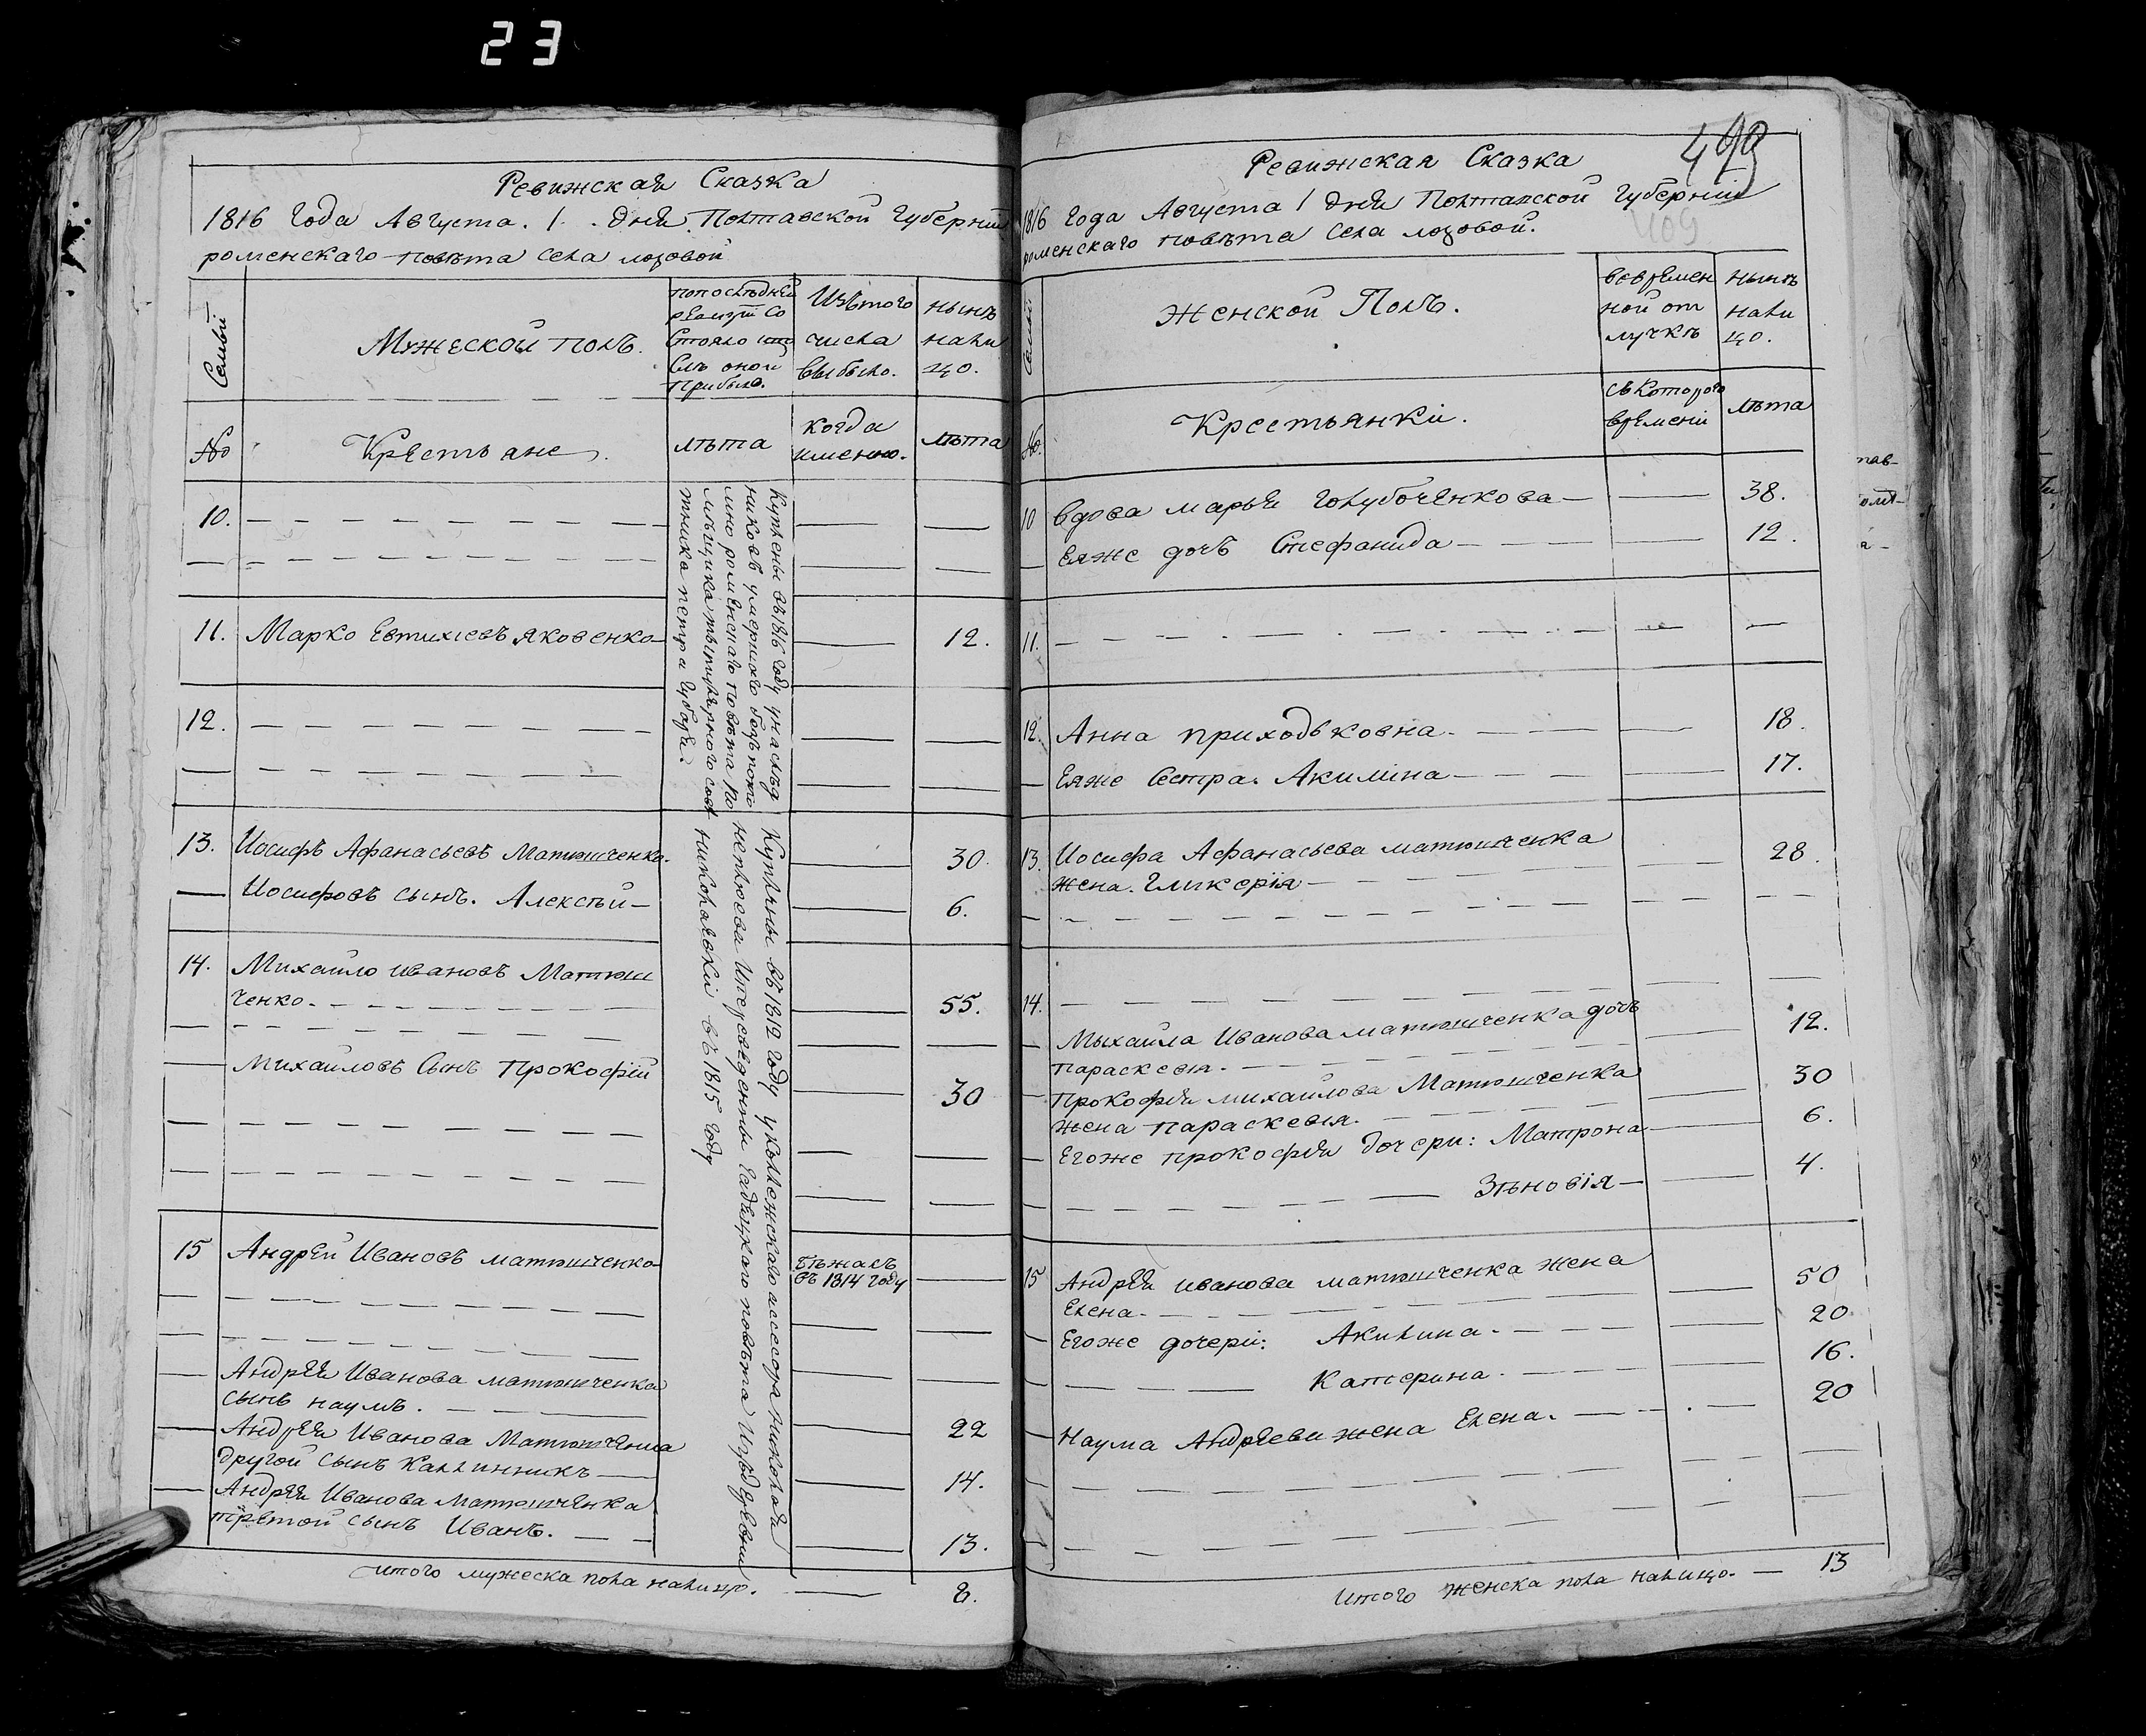 23
Ревижская Сказка
1816 года Августа. 1. дня. Полтавской губерніи
роменскаго повѣта села лозовой
Семьи
Мужеской полъ.
попослѣдней
ревизіи со
стояло
слѣ оной
прибыло.
Изътого
числа
выбыло.
нынѣ
нали
цо.
№
Крестьяне.
лѣта
когда
именно.
лѣта
10.
11. Марко Евтихіевъ Яковенко 12.
12.
Купленны въ 1816 году унаслѣд
никовъ умершого
мно роменскаго повѣта по
мѣщика титулярного совѣ
тника петра
13. Иосифъ Афанасьевъ Матюшченко. 30.
Иосифовъ сынъ. Алексѣй 6.
14. Михайло ивановъ Матюш
ченко. 55.
Михайловъ Сынъ Прокофій 30
15 Андрей Ивановъ матюшченко бѣжалъ
въ 1814 году
Андрея Иванова матюшченка
сынъ наумъ. 22
Андрея Иванова Матюшченка
другой сынъ Каллинникъ 14.
Андрея Иванова Матюшченка
третой сынъ Иванъ. 13.
Купленны въ 1812 году уколлежскаго ассесора николая
неплюева Ипереведенны Гадяцкого повѣта Издеревни
николаевки въ 1815 году
итого мужеска пола налицо. 8.
499
409
Ревижская Сказка
1816 года Августа 1 дня Полтавской губерніи
роменскаго повѣта села лозовой.
Семьи
Женской Полъ.
вовремен
ной от
лучкѣ
нынѣ
нали
цо.
№.
Крестьянкі.
съкоторого
времені
лѣта
10 вдова марья голубоченкова 38.
Еяже дочъ Стефанида 12.
11.
12. Анна приходьковна. 18.
Еяже Сестра. Акиліна 17.
13. Иосифа Афанасьева матюшченка 28.
жена. Гликерія
14.
Михаила Иванова матюшченка дочъ 12.
параскевія.
Прокофія михайлова Матюшченка 30
жена параскевія.
Егоже прокофія дочери: Матрона 6.
Зѣновія 4.
15 Андрея иванова матюшченка жена 50
Елена.
Егоже дочері: Акилина. 20
Катерина. 16.
Наума Андреева жена Елена. 20
итого женска пола налицо. 13